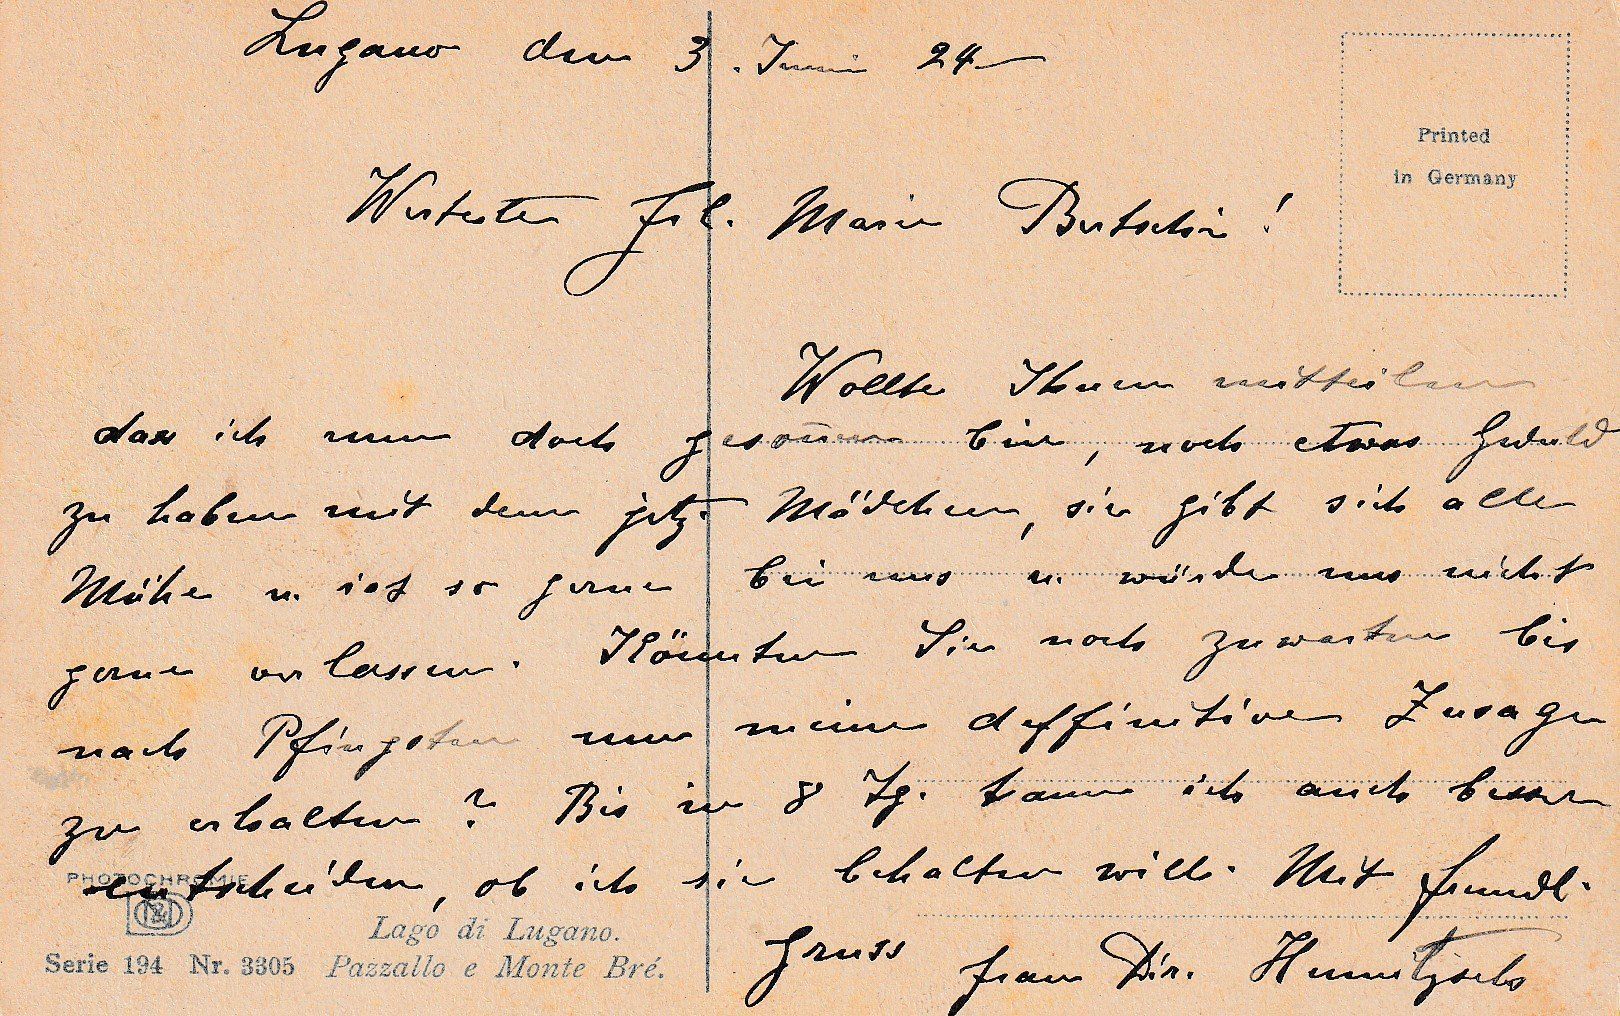 Lugano den 3. Juni 24
Printed
in Germany
Werteste Frl. Marie Bertschi!
Wollte Ihnen mitteilen
dass ich nun doch gesonnen bin, noch etwas Geduld
zu haben mit dem jetz. Mädchen, sie gibt sich alle
Mühe u. ist so gerne bei uns u. würde uns nicht
gerne verlassen. Könnten Sie noch zuwarten bis
nach Pfingsten um meine deffinitive Zusage
zu erhalten? Bis in 8 Tg. kann ich auch besser
entscheiden, ob ich sie behalten will. Mit freundl.
Gruss Frau Dir.
PHOTOCHROMIE
Lago di Lugano.
Serie 194 Nr. 3305 Pazzallo e Monte Bré.